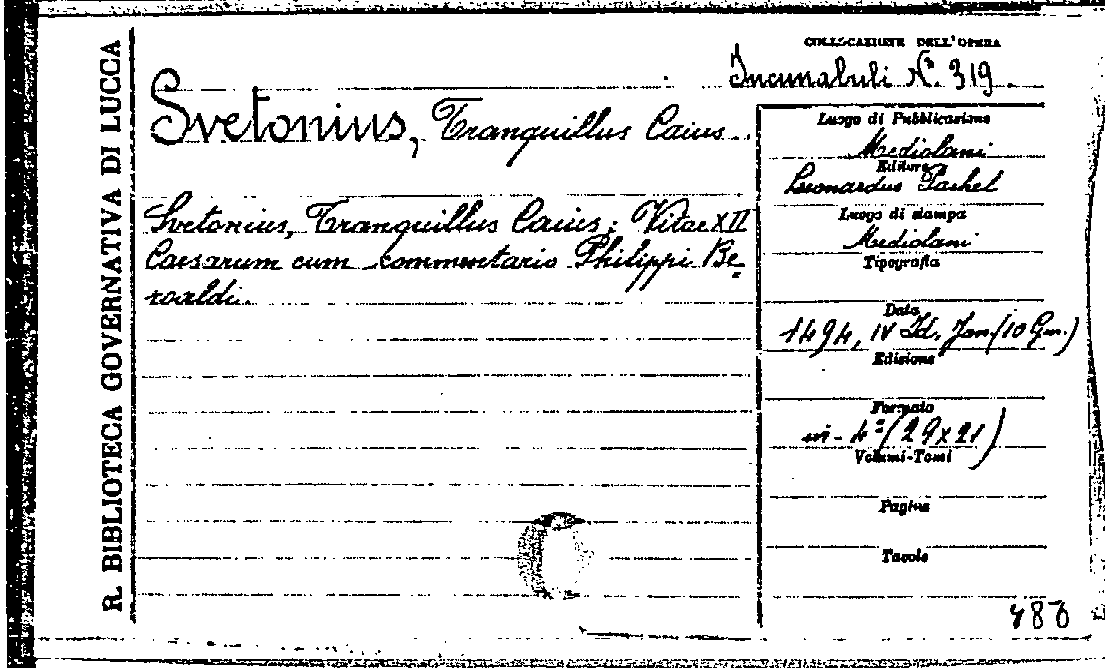 R. BIBLIOTECA GOVERNATIVA DI LUCCA
COLLOCAZIONE DELL'OPERA
Incunabuli N.° 319.
Svetonius, Tranquillus Caius.
Svetonius, Tranquillus Caius: Vitae XII
Caesarum cum commentario Philippi Be=
roaldi.
Luogo di Pubblicazione
Mediolani
Editore
Leonardus Pachel
Luogo di stampa
Mediolani
Tipografia
Data
1494, IV Id. Jan. (10 Gen.)
Edizione
Formato
in-4° (29x21)
Volumi-Tomi
Pagine
Tavole